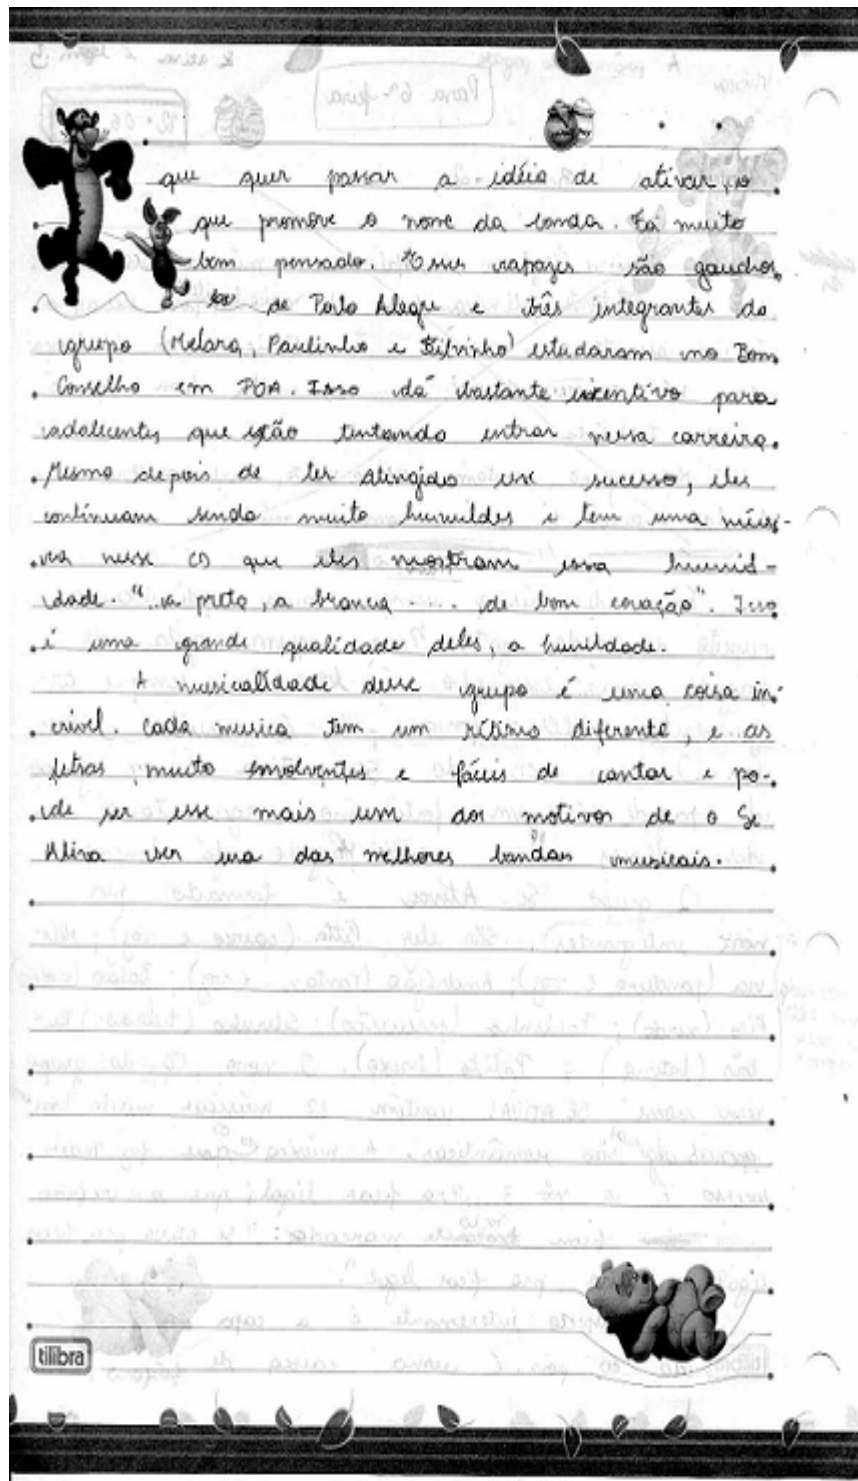 que quer passar a idéia de ativar, o
que promove o nome da banda. Tá muito
bem pensado. Esses rapazes são gauchos,
de Porto Alegre e três integrantes do
grupo (Melara, Paulinho e Silvinho) estudaram no Bom
Conselho em POA. Isso dá bastante incentivo para
adolecentes que estão tentando entrar nessa carreira.
Mesmo depois de ter atingido esse sucesso, eles
continuam sendo muito humildes e tem uma músi-
ca nesse CD que eles mostram essa humild-
dade. "a preta, a branca ... de bom coração". Isso
é uma grande qualidade deles, a humildade.
A musicalidade desse grupo é uma coisa in-
crivel. Cada musica tem um rítimo diferente, e as
letras muito envolventes e fáceis de cantar e po-
de ser esse mais um dos motivos de o Se
Ativa ser uma das melhores bandas musicais.
tilibra